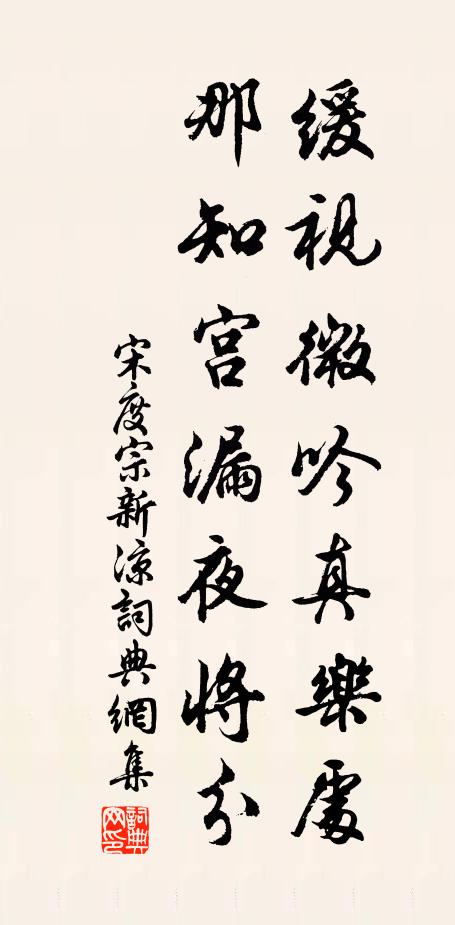 緩視微吟真樂處
那知宮漏夜將分
宋度宗新涼詞典網集
詞典網印